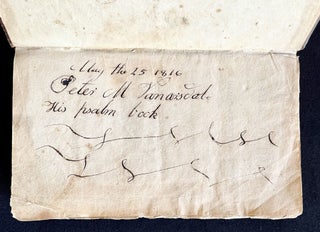 May the 25 1816
Peter M Vanarsdal
His psalm book